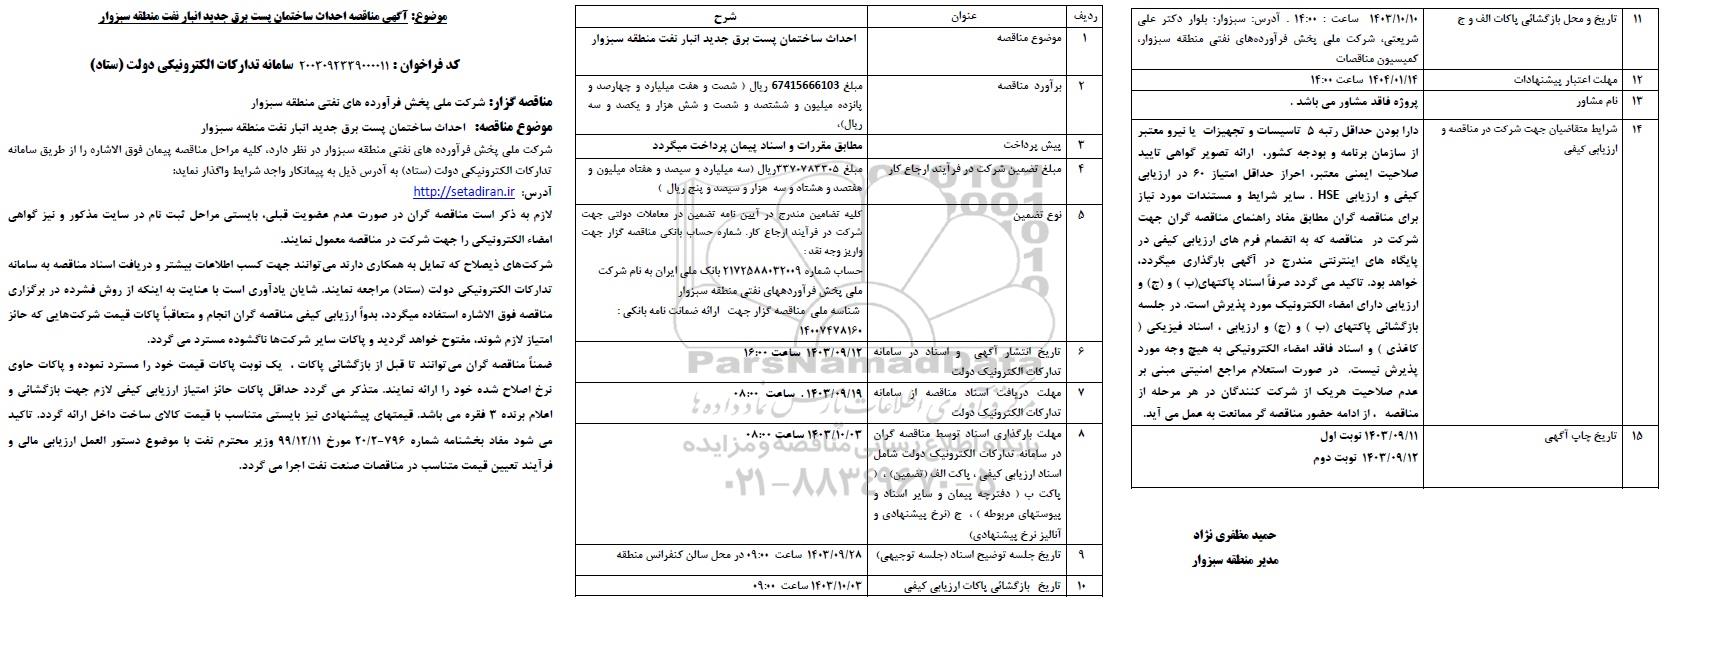 موضوع: آگهی مناقصه احداث ساختمان پست برق جدید انبار نفت منطقه سبزوار
کد فراخوان : ۲۰۰۳۰۹۲۳۳۹۰۰۰۰۱۱ سامانه تدارکات الکترونیکی دولت (ستاد)
مناقصه گزار: شرکت ملی پخش فرآورده های نفتی منطقه سبزوار
موضوع مناقصه: احداث ساختمان پست برق جدید انبار نفت منطقه سبزوار
شرکت ملی پخش فرآورده های نفتی منطقه سبزوار در نظر دارد، کلیه مراحل مناقصه پیمان فوق الاشاره را از طریق سامانه
تدارکات الکترونیکی دولت (ستاد) به آدرس ذیل به پیمانکار واجد شرایط واگذار نماید:
آدرس: http://setadiran.ir
لازم به ذکر است مناقصه گران در صورت عدم عضویت قبلی، بایستی مراحل ثبت نام در سایت مذکور و نیز گواهی
امضاء الکترونیکی را جهت شرکت در مناقصه معمول نمایند.
شرکت‌های ذیصلاح که تمایل به همکاری دارند می‌توانند جهت کسب اطلاعات بیشتر و دریافت اسناد مناقصه به سامانه
تدارکات الکترونیکی دولت (ستاد) مراجعه نمایند. شایان یادآوری است با عنایت به اینکه از روش فشرده در برگزاری
مناقصه فوق الاشاره استفاده میگردد، بدواً ارزیابی کیفی مناقصه گران انجام و متعاقباً پاکات قیمت شرکت‌هایی که حائز
امتیاز لازم شوند، مفتوح خواهد گردید و پاکات سایر شرکت‌ها ناگشوده مسترد می گردد.
ضمناً مناقصه گران می‌توانند تا قبل از بازگشائی پاکات ، یک نوبت پاکات قیمت خود را مسترد نموده و پاکات حاوی
نرخ اصلاح شده خود را ارائه نمایند. متذکر می گردد حداقل پاکات حائز امتیاز ارزیابی کیفی لازم جهت بازگشائی و
اعلام برنده ۳ فقره می باشد. قیمتهای پیشنهادی نیز بایستی متناسب با قیمت کالای ساخت داخل ارائه گردد. تاکید
می شود مفاد بخشنامه شماره ۷۹۶-۲۰/۲ مورخ ۹۹/۱۲/۱۱ وزیر محترم نفت با موضوع دستور العمل ارزیابی مالی و
فرآیند تعیین قیمت متناسب در مناقصات صنعت نفت اجرا می گردد.
ردیف عنوان شرح
۱ موضوع مناقصه احداث ساختمان پست برق جدید انبار نفت منطقه سبزوار
۲ برآورد مناقصه مبلغ 67415666103 ریال ( شصت و هفت میلیارد و چهارصد و
پانزده میلیون و ششصد و شصت و شش هزار و یکصد و سه
ریال)،
۳ پیش پرداخت مطابق مقررات و اسناد پیمان پرداخت میگردد
۴ مبلغ تضمین شرکت در فرآیند ارجاع کار مبلغ ۳۳۷۰۷۸۳۳۰۵ریال (سه میلیارد و سیصد و هفتاد میلیون و
هفتصد و هشتاد و سه هزار و سیصد و پنج ریال )
۵ نوع تضمین کلیه تضامین مندرج در آیین نامه تضمین در معاملات دولتی جهت
شرکت در فرآیند ارجاع کار. شماره حساب بانکی مناقصه گزار جهت
واریز وجه نقد :
حساب شماره ۲۱۷۲۵۸۸۰۳۲۰۰۹ بانک ملی ایران به نام شرکت
ملی پخش فرآوردههای نفتی منطقه سبزوار
شناسه ملی مناقصه گزار جهت ارائه ضمانت نامه بانکی :
۱۴۰۰۷۴۷۸۱۶۰
۶ تاریخ انتشار آگهی و اسناد در سامانه
تدارکات الکترونیک دولت
۱۴۰۳/۰۹/۱۲ ساعت ۱۶:۰۰
۷ مهلت دریافت اسناد مناقصه از سامانه
تدارکات الکترونیک دولت
۱۴۰۳/۰۹/۱۹ . ساعت ۰۸:۰۰
۸ مهلت بارگذاری اسناد توسط مناقصه گران
در سامانه تدارکات الکترونیک دولت شامل
اسناد ارزیابی کیفی ، پاکت الف (تضمین) ، (
پاکت ب ( دفترچه پیمان و سایر اسناد و
پیوستهای مربوطه ) ، ج (نرخ پیشنهادی و
آنالیز نرخ پیشنهادی)
۱۴۰۳/۱۰/۰۳ ساعت ۰۸:۰۰
۹ تاریخ جلسه توضیح اسناد (جلسه توجیهی) ۱۴۰۳/۰۹/۲۸ ساعت ۰۹:۰۰ در محل سالن کنفرانس منطقه
۱۰ تاریخ بازگشائی پاکات ارزیابی کیفی ۱۴۰۳/۱۰/۰۳ ساعت ۰۹:۰۰
ParsNamadData
پایگاه اطلاع رسانی مناقصه و مزایده
۰۲۱-۸۸۳۴۹۶۷۰-۵
۱۱ تاریخ و محل بازگشائی پاکات الف و ج ۱۴۰۳/۱۰/۱۰ ساعت : ۱۴:۰۰ . آدرس: سبزوار؛ بلوار دکتر علی
شریعتی، شرکت ملی پخش فرآورده‌های نفتی منطقه سبزوار،
کمیسیون مناقصات
۱۲ مهلت اعتبار پیشنهادات ۱۴۰۴/۰۱/۱۴ ساعت ۱۴:۰۰
۱۳ نام مشاور پروژه فاقد مشاور می باشد .
۱۴ شرایط متقاضیان جهت شرکت در مناقصه و
ارزیابی کیفی
دارا بودن حداقل رتبه ۵ تاسیسات و تجهیزات یا نیرو معتبر
از سازمان برنامه و بودجه کشور، ارائه تصویر گواهی تایید
صلاحیت ایمنی معتبر، احراز حداقل امتیاز ۶۰ در ارزیابی
کیفی و ارزیابی HSE . سایر شرایط و مستندات مورد نیاز
برای مناقصه گران مطابق مفاد راهنمای مناقصه گران جهت
شرکت در مناقصه که به انضمام فرم های ارزیابی کیفی در
پایگاه های اینترنتی مندرج در آگهی بارگذاری میگردد،
خواهد بود. تاکید می گردد صرفاً اسناد پاکتهای(ب ) و (ج) و
ارزیابی دارای امضاء الکترونیک مورد پذیرش است. در جلسه
بازگشائی پاکتهای (ب ) و (ج) و ارزیابی ، اسناد فیزیکی (
کاغذی ) و اسناد فاقد امضاء الکترونیکی به هیچ وجه مورد
پذیرش نیست. در صورت استعلام مراجع امنیتی مبنی بر
عدم صلاحیت هریک از شرکت کنندگان در هر مرحله از
مناقصه ، از ادامه حضور مناقصه گر ممانعت به عمل می آید.
۱۵ تاریخ چاپ آگهی ۱۴۰۳/۰۹/۱۱ نوبت اول
۱۴۰۳/۰۹/۱۲ نوبت دوم
حمید مظفری نژاد
مدیر منطقه سبزوار